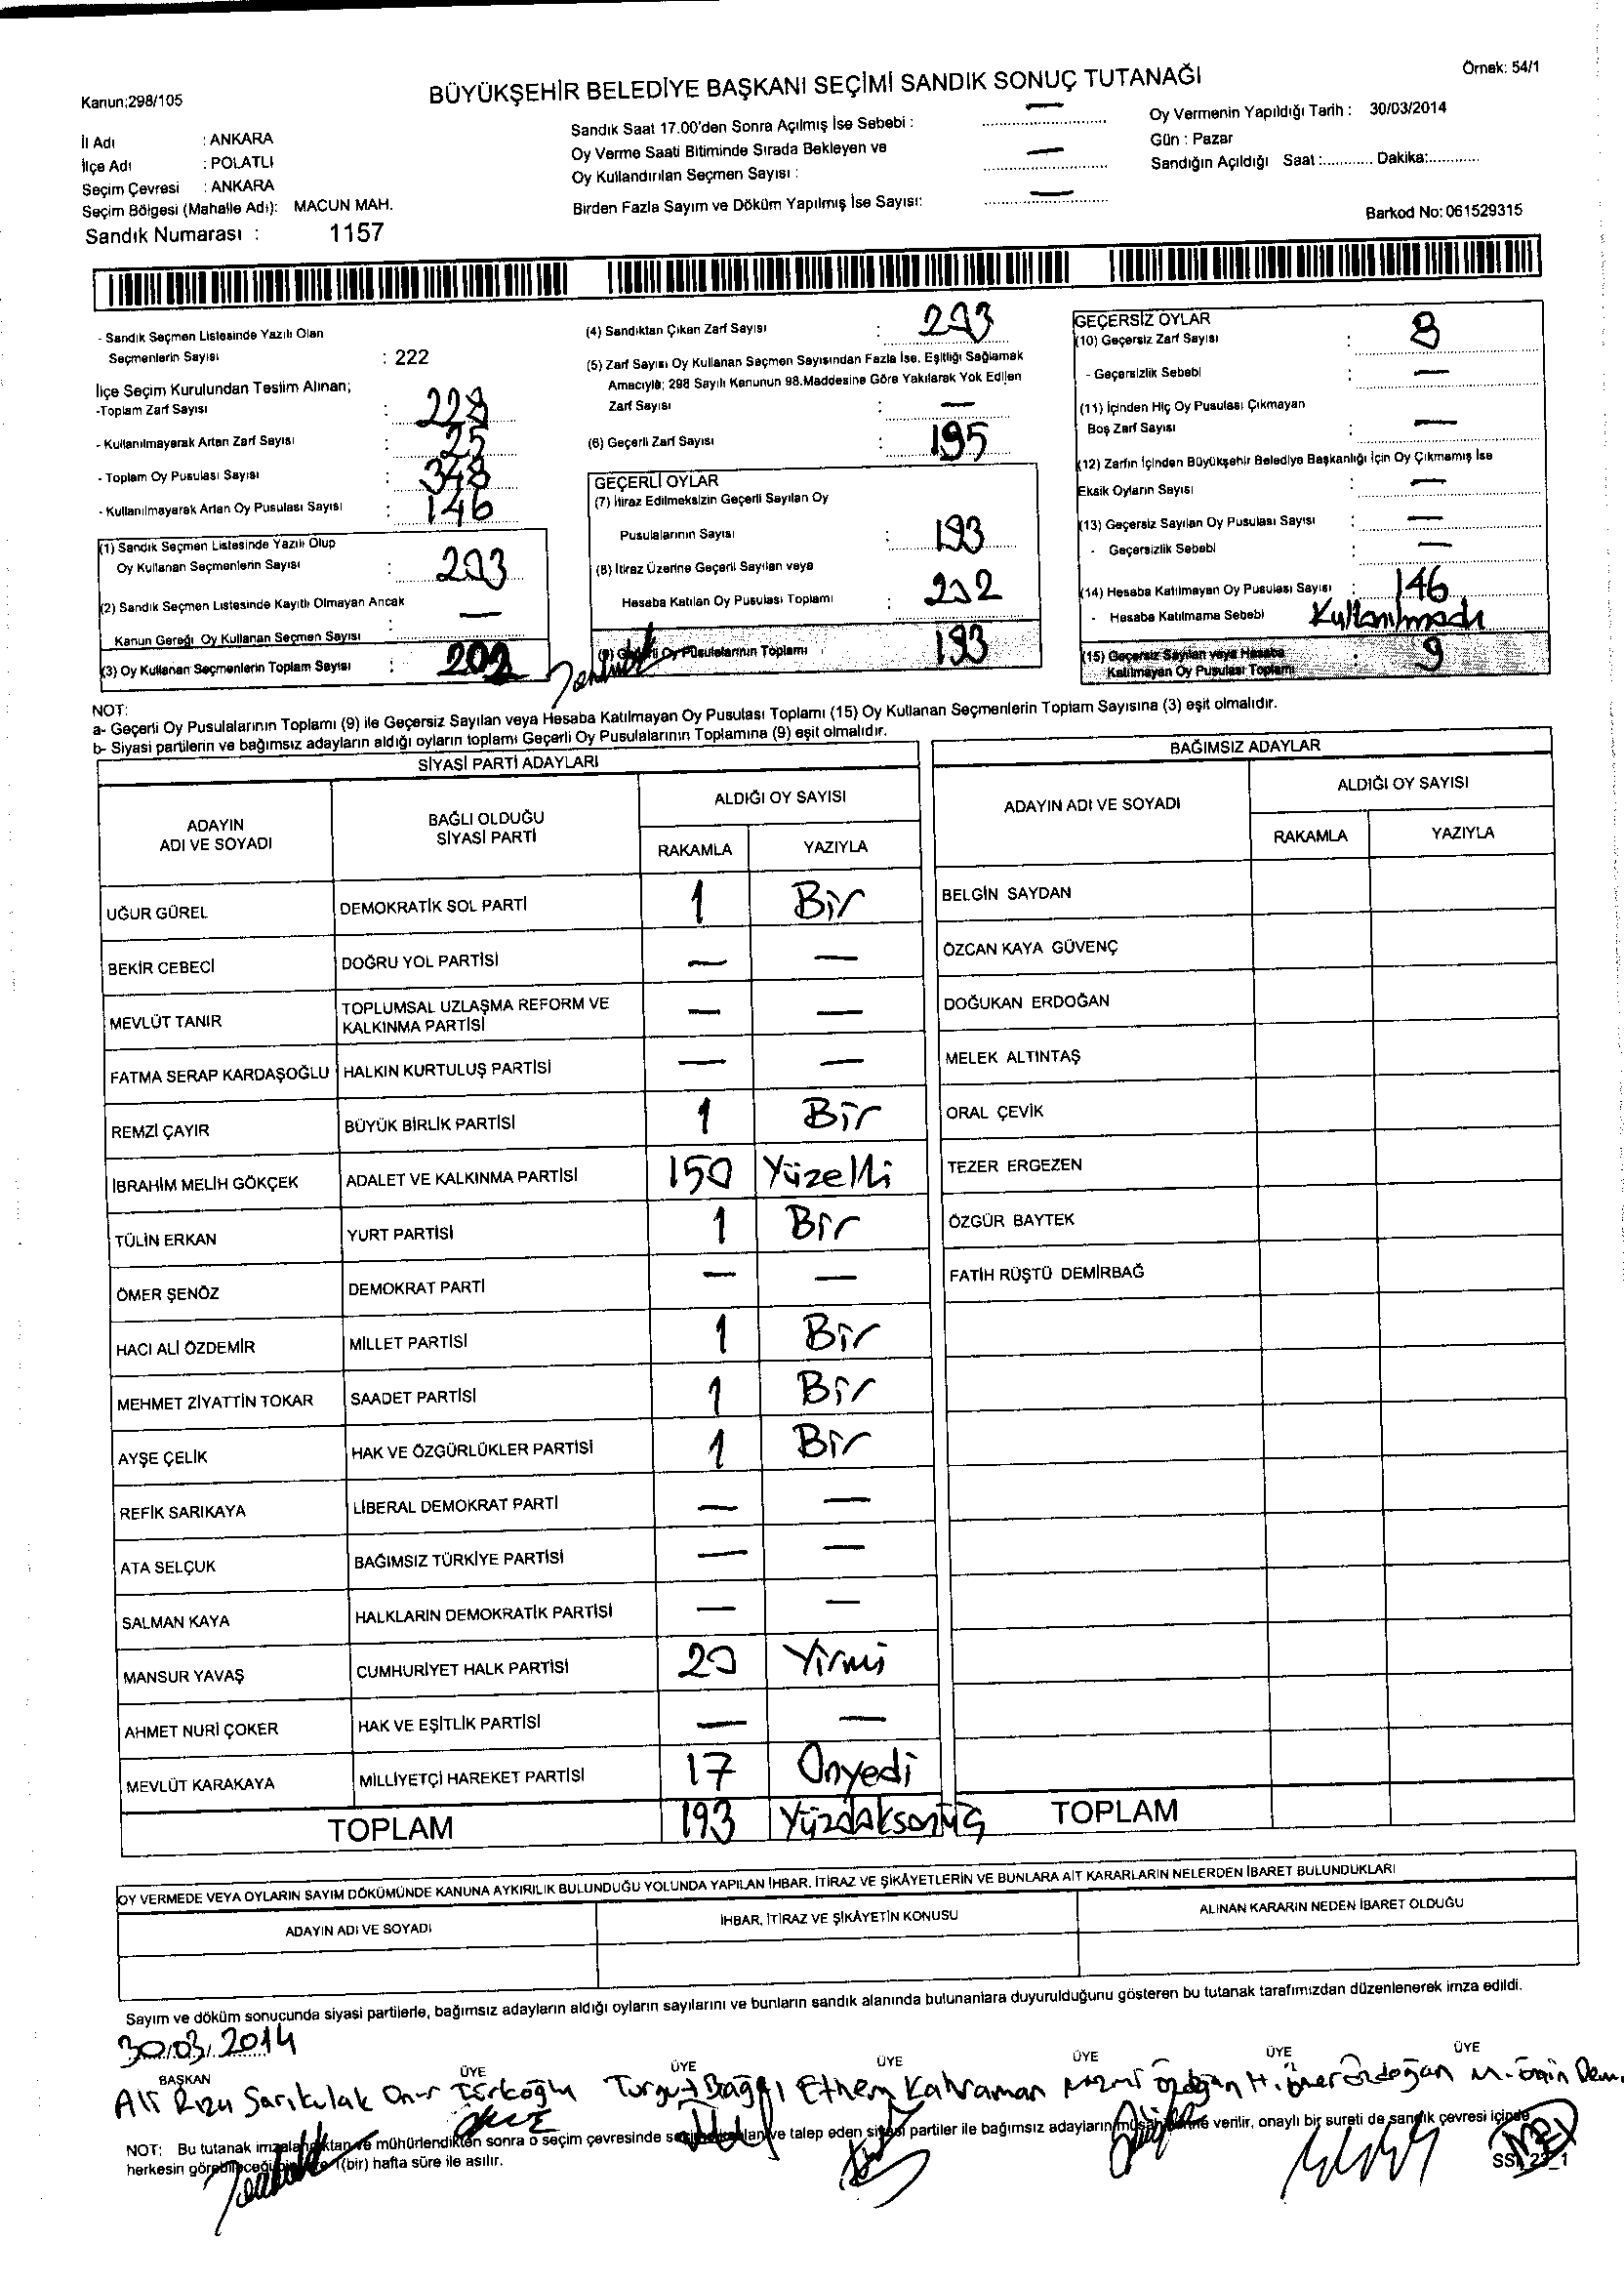 Kanun;298/105
BÜYÜKŞEHİR BELEDİYE BAŞKANI SEÇİMİ SANDIK SONUÇ TUTANAĞI
Örnek: 54/1
İl Adı : ANKARA
İlçe Adı : POLATLI
Seçim Çevresi : ANKARA
Seçim Bölgesi (Mahalle Adı): MACUN MAH.
Sandık Numarası : 1157
Sandık Saat 17.00'den Sonra Açılmış İse Sebebi : —
Oy Verme Saati Bitiminde Sırada Bekleyen ve
Oy Kullandırılan Seçmen Sayısı : —
Birden Fazla Sayım ve Döküm Yapılmış İse Sayısı: —
Oy Vermenin Yapıldığı Tarih : 30/03/2014
Gün : Pazar
Sandığın Açıldığı Saat :............ Dakika:............
Barkod No: 061529315
- Sandık Seçmen Listesinde Yazılı Olan
Seçmenlerin Sayısı : 222
İlçe Seçim Kurulundan Teslim Alınan;
-Toplam Zarf Sayısı :
- Kullanılmayarak Artan Zarf Sayısı : 25
- Toplam Oy Pusulası Sayısı : 348
- Kullanılmayarak Artan Oy Pusulası Sayısı : 146
(1) Sandık Seçmen Listesinde Yazılı Olup
Oy Kullanan Seçmenlerin Sayısı : 203
(2) Sandık Seçmen Listesinde Kayıtlı Olmayan Ancak
Kanun Gereği Oy Kullanan Seçmen Sayısı : —
(3) Oy Kullanan Seçmenlerin Toplam Sayısı : 202
(4) Sandıktan Çıkan Zarf Sayısı : 203
(5) Zarf Sayısı Oy Kullanan Seçmen Sayısından Fazla İse, Eşitliği Sağlamak
Amacıyla; 298 Sayılı Kanunun 98.Maddesine Göre Yakılarak Yok Edilen
Zarf Sayısı : —
(6) Geçerli Zarf Sayısı : 195
GEÇERLİ OYLAR
(7) İtiraz Edilmeksizin Geçerli Sayılan Oy
Pusulalarının Sayısı : 193
(8) İtiraz Üzerine Geçerli Sayılan veya
Hesaba Katılan Oy Pusulası Toplamı : 202
(9) Geçerli Oy Pusulalarının Toplamı : 193
GEÇERSİZ OYLAR
(10) Geçersiz Zarf Sayısı : 8
- Geçersizlik Sebebi : —
(11) İçinden Hiç Oy Pusulası Çıkmayan
Boş Zarf Sayısı : —
(12) Zarfın İçinden Büyükşehir Belediye Başkanlığı İçin Oy Çıkmamış İse
Eksik Oyların Sayısı : —
(13) Geçersiz Sayılan Oy Pusulası Sayısı : —
- Geçersizlik Sebebi : —
(14) Hesaba Katılmayan Oy Pusulası Sayısı : 146
- Hesaba Katılmama Sebebi Kullanılmadı
(15) Geçersiz Sayılan veya Hesaba
Katılmayan Oy Pusulası Toplamı : 9
NOT:
a- Geçerli Oy Pusulalarının Toplamı (9) ile Geçersiz Sayılan veya Hesaba Katılmayan Oy Pusulası Toplamı (15) Oy Kullanan Seçmenlerin Toplam Sayısına (3) eşit olmalıdır.
b- Siyasi partilerin ve bağımsız adayların aldığı oyların toplamı Geçerli Oy Pusulalarının Toplamına (9) eşit olmalıdır.
SİYASİ PARTİ ADAYLARI
ADAYIN ADI VE SOYADI
BAĞLI OLDUĞU SİYASİ PARTİ
ALDIĞI OY SAYISI
RAKAMLA YAZIYLA
UĞUR GÜREL DEMOKRATİK SOL PARTİ 1 Bir
BEKİR CEBECİ DOĞRU YOL PARTİSİ — —
MEVLÜT TANIR TOPLUMSAL UZLAŞMA REFORM VE KALKINMA PARTİSİ — —
FATMA SERAP KARDAŞOĞLU HALKIN KURTULUŞ PARTİSİ — —
REMZİ ÇAYIR BÜYÜK BİRLİK PARTİSİ 1 Bir
İBRAHİM MELİH GÖKÇEK ADALET VE KALKINMA PARTİSİ 150 Yüzelli
TÜLİN ERKAN YURT PARTİSİ 1 Bir
ÖMER ŞENÖZ DEMOKRAT PARTİ — —
HACI ALİ ÖZDEMİR MİLLET PARTİSİ 1 Bir
MEHMET ZİYATTİN TOKAR SAADET PARTİSİ 1 Bir
AYŞE ÇELİK HAK VE ÖZGÜRLÜKLER PARTİSİ 1 Bir
REFİK SARIKAYA LİBERAL DEMOKRAT PARTİ — —
ATA SELÇUK BAĞIMSIZ TÜRKİYE PARTİSİ — —
SALMAN KAYA HALKLARIN DEMOKRATİK PARTİSİ — —
MANSUR YAVAŞ CUMHURİYET HALK PARTİSİ 20 Yirmi
AHMET NURİ ÇOKER HAK VE EŞİTLİK PARTİSİ — —
MEVLÜT KARAKAYA MİLLİYETÇİ HAREKET PARTİSİ 17 Onyedi
TOPLAM 193
BAĞIMSIZ ADAYLAR
ADAYIN ADI VE SOYADI
ALDIĞI OY SAYISI
RAKAMLA YAZIYLA
BELGİN SAYDAN
ÖZCAN KAYA GÜVENÇ
DOĞUKAN ERDOĞAN
MELEK ALTINTAŞ
ORAL ÇEVİK
TEZER ERGEZEN
ÖZGÜR BAYTEK
FATİH RÜŞTÜ DEMİRBAĞ
TOPLAM
OY VERMEDE VEYA OYLARIN SAYIM DÖKÜMÜNDE KANUNA AYKIRILIK BULUNDUĞU YOLUNDA YAPILAN İHBAR, İTİRAZ VE ŞİKÂYETLERİN VE BUNLARA AİT KARARLARIN NELERDEN İBARET BULUNDUKLARI
ADAYIN ADI VE SOYADI
İHBAR, İTİRAZ VE ŞİKÂYETİN KONUSU
ALINAN KARARIN NEDEN İBARET OLDUĞU
Sayım ve döküm sonucunda siyasi partilerle, bağımsız adayların aldığı oyların sayılarını ve bunların sandık alanında bulunanlara duyurulduğunu gösteren bu tutanak tarafımızdan düzenlenerek imza edildi.
30.03.2014
BAŞKAN ÜYE ÜYE ÜYE ÜYE ÜYE ÜYE
Ali Rıza Sarıkulak Onur Türkoğlu Turgut Bağcı Ethem Kahraman Nazmi Özdoğan H. Ömer Özdoğan M. Emin
NOT: Bu tutanak imzalandıktan ve mühürlendikten sonra o seçim çevresinde seçime katılan ve talep eden siyasi partiler ile bağımsız adayların müşahitlerine verilir, onaylı bir sureti de sandık çevresi içinde
herkesin görebileceği bir yere 1(bir) hafta süre ile asılır.